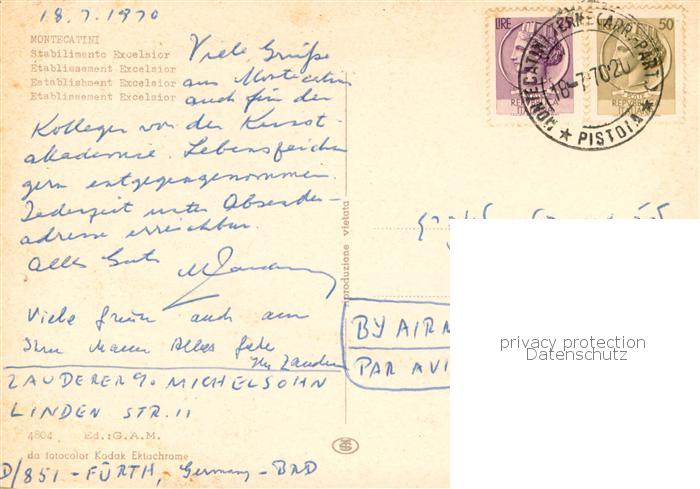 18.7.1970
MONTECATINI
Stabilimento Excelsior
Etablissement Excelsior
Establishment Excelsior
Etablissement Excelsior
Viele Grüße
aus Montecatini
auch für den
Kollegen von der Kunst-
akademie. Lebenszeichen
gern entgegengenommen.
Jederzeit unter Absender-
adresse erreichbar.
Alles Gute
Viele Grüße auch an
Ihre Alles Gute
ZAUDERER 9. MICHELSOHN
LINDEN STR. 11
4804 Ed.:G.A.M.
da fotocolor Kodak Ektachrome
D/851 - FÜRTH, Germany - BRD
riproduzione vietata
LIRE
50
MONTECATINI TERME
18-7-70 20
★ PISTOIA ★
BY AIR M
PAR AVI
privacy protection
Datenschutz